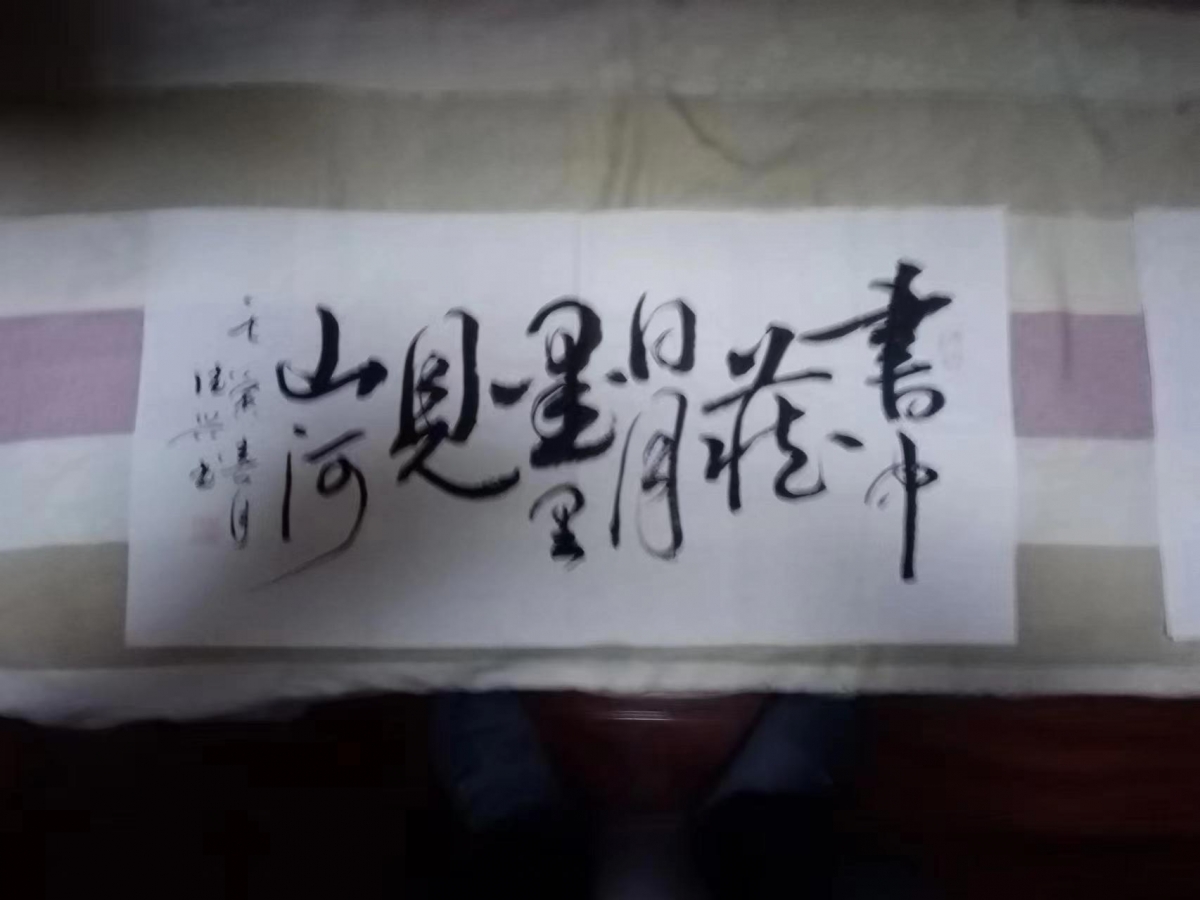 書中
藏
日月
墨里
見
山河
春月
書